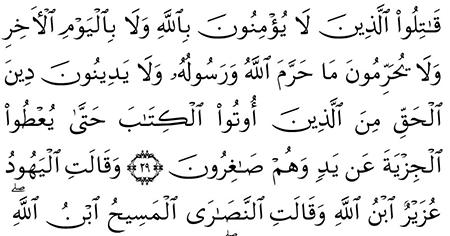 قَٰتِلُوا۟ ٱلَّذِينَ لَا يُؤْمِنُونَ بِٱللَّهِ وَلَا بِٱلْيَوْمِ ٱلْأَخِرِ
وَلَا يُحَرِّمُونَ مَا حَرَّمَ ٱللَّهُ وَرَسُولُهُۥ وَلَا يَدِينُونَ دِينَ
ٱلْحَقِّ مِنَ ٱلَّذِينَ أُوتُوا۟ ٱلْكِتَٰبَ حَتَّىٰ يُعْطُوا۟
ٱلْجِزْيَةَ عَن يَدٍ وَهُمْ صَٰغِرُونَ ۝٢٩ وَقَالَتِ ٱلْيَهُودُ
عُزَيْرٌ ٱبْنُ ٱللَّهِ وَقَالَتِ ٱلنَّصَٰرَى ٱلْمَسِيحُ ٱبْنُ ٱللَّهِۖ